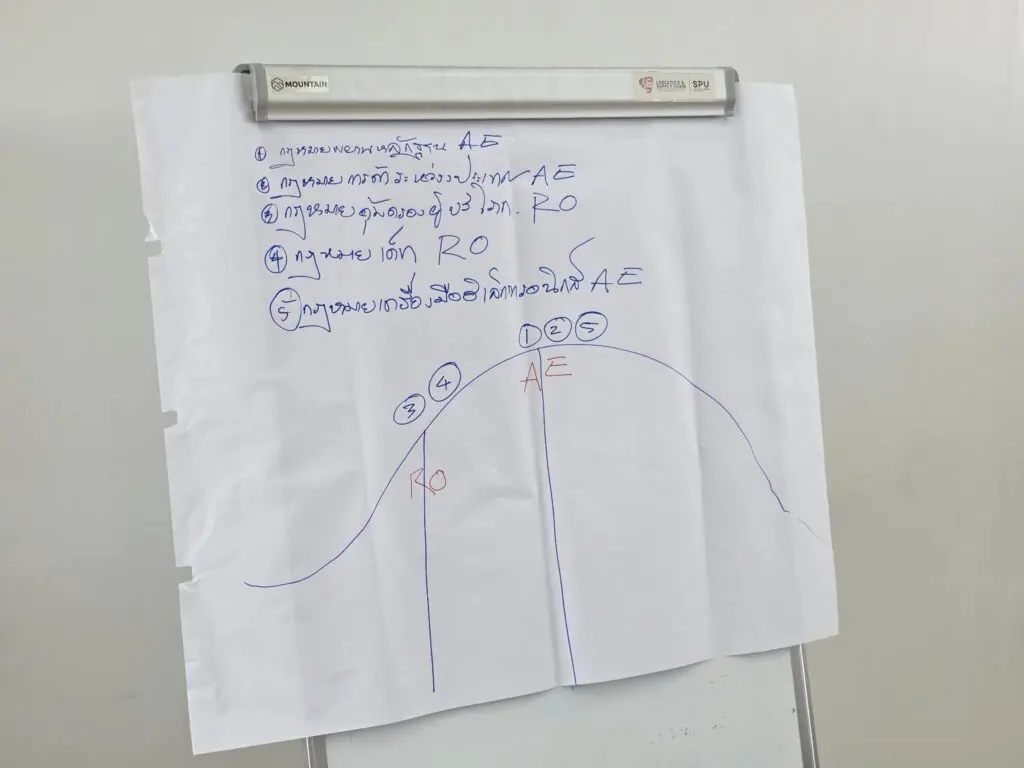 MOUNTAIN
LOGISTICS &
SUPPLY CHAIN
SPU
① กฎหมายพยานหลักฐาน AE
② กฎหมายการค้าระหว่างประเทศ AE
③ กฎหมายคุ้มครองผู้บริโภค. RO
④ กฎหมายเด็ก RO
⑤ กฎหมายเครื่องมืออิเล็กทรอนิกส์ AE
① ② ⑤
AE
③ ④
RO